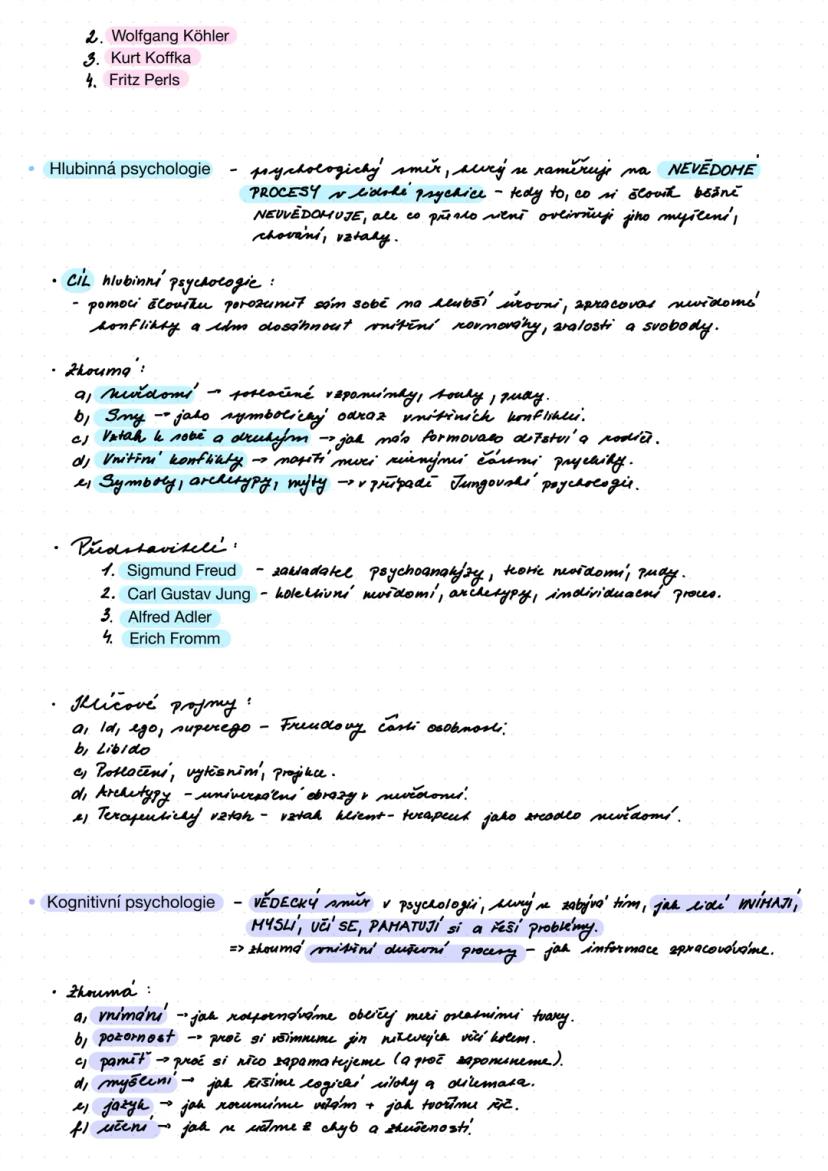 2. Wolfgang Köhler
3. Kurt Koffka
4. Fritz Perls
• Hlubinná psychologie - psychologický směr, který se zaměřuje na NEVĚDOMÉ
PROCESY v lidské psychice - tedy to, co si člověk běžně
NEUVĚDOMUJE, ale co přesto silně ovlivňuje jeho myšlení,
chování, vztahy.
• CÍL hlubinní psychologie:
- pomoci člověku porozumět sám sobě na hlubší úrovni, zpracovat nevědomé
konflikty a tím dosáhnout vnitřní rovnováhy, zralosti a svobody.
• Zkoumá:
a) nevědomí → potlačené vzpomínky, touhy, pudy.
b) Sny → jako symbolický odraz vnitřních konfliktů.
c) Vztah k sobě a druhým → jak nás formovalo dětství a rodiče.
d) Vnitřní konflikty → napětí mezi různými částmi psychiky.
e) Symboly, archetypy, mýty → v případě Jungovské psychologie.
• Představitelé:
1. Sigmund Freud - zakladatel psychoanalýzy, teorie nevědomí, pudy.
2. Carl Gustav Jung - kolektivní nevědomí, archetypy, individuační proces.
3. Alfred Adler
4. Erich Fromm
• Klíčové pojmy:
a) Id, ego, superego - Freudovy části osobnosti.
b) Libido
c) Potlačení, vytěsnění, projekce.
d) Archetypy - univerzální obrazy v nevědomí.
e) Terapeutický vztah - vztah klient - terapeut jako zrcadlo nevědomí.
• Kognitivní psychologie - VĚDECKÝ směr v psychologii, který se zabývá tím, jak lidé VNÍMAJÍ,
MYSLÍ, UČÍ SE, PAMATUJÍ si a řeší problémy.
=> zkoumá vnitřní duševní procesy - jak informace zpracováváme.
• Zkoumá:
a) vnímání → jak rozpoznáváme obličej mezi ostatními tvary.
b) pozornost → proč si všimneme jen některých věcí kolem.
c) paměť → proč si něco zapamatujeme (a proč zapomeneme).
d) myšlení → jak řešíme logické úlohy a dilemata.
e) jazyk → jak rozumíme větám + jak tvoříme řeč.
f) učení → jak se učíme z chyb a zkušeností.